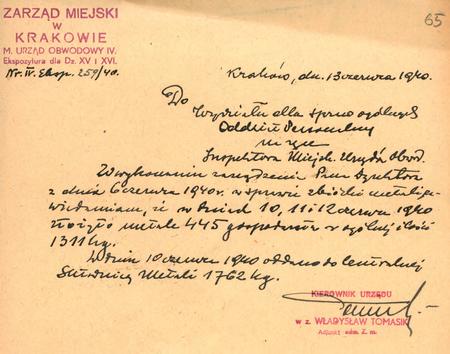 ZARZĄD MIEJSKI
W
KRAKOWIE
M. URZĄD OBWODOWY IV.
Ekspozytura dla Dz. XV i XVI.
Nr. IV. Eksp. 259/40.
65
Kraków, dn. 13 czerwca 1940.
Do
Wydziału dla spraw ogólnych
Oddział Personalny
Inspektora Miejsk. Urzędów Obwod.
W wykonaniu zarządzenia Pana Dyrektora
z dnia 6 czerwca 1940 r. w sprawie zbiórki metali za-
wiadamiam, iż w dniach 10, 11 i 12 czerwca 1940
złożyło metale 445 gospodarstw w ogólnej ilości
1311 kg.
W dniu 10 czerwca 1940 oddano do Centralnej
Składnicy Metali 1762 kg.
KIEROWNIK URZĘDU
w z. WŁADYSŁAW TOMASIK
Adjunkt adm. Z. m.